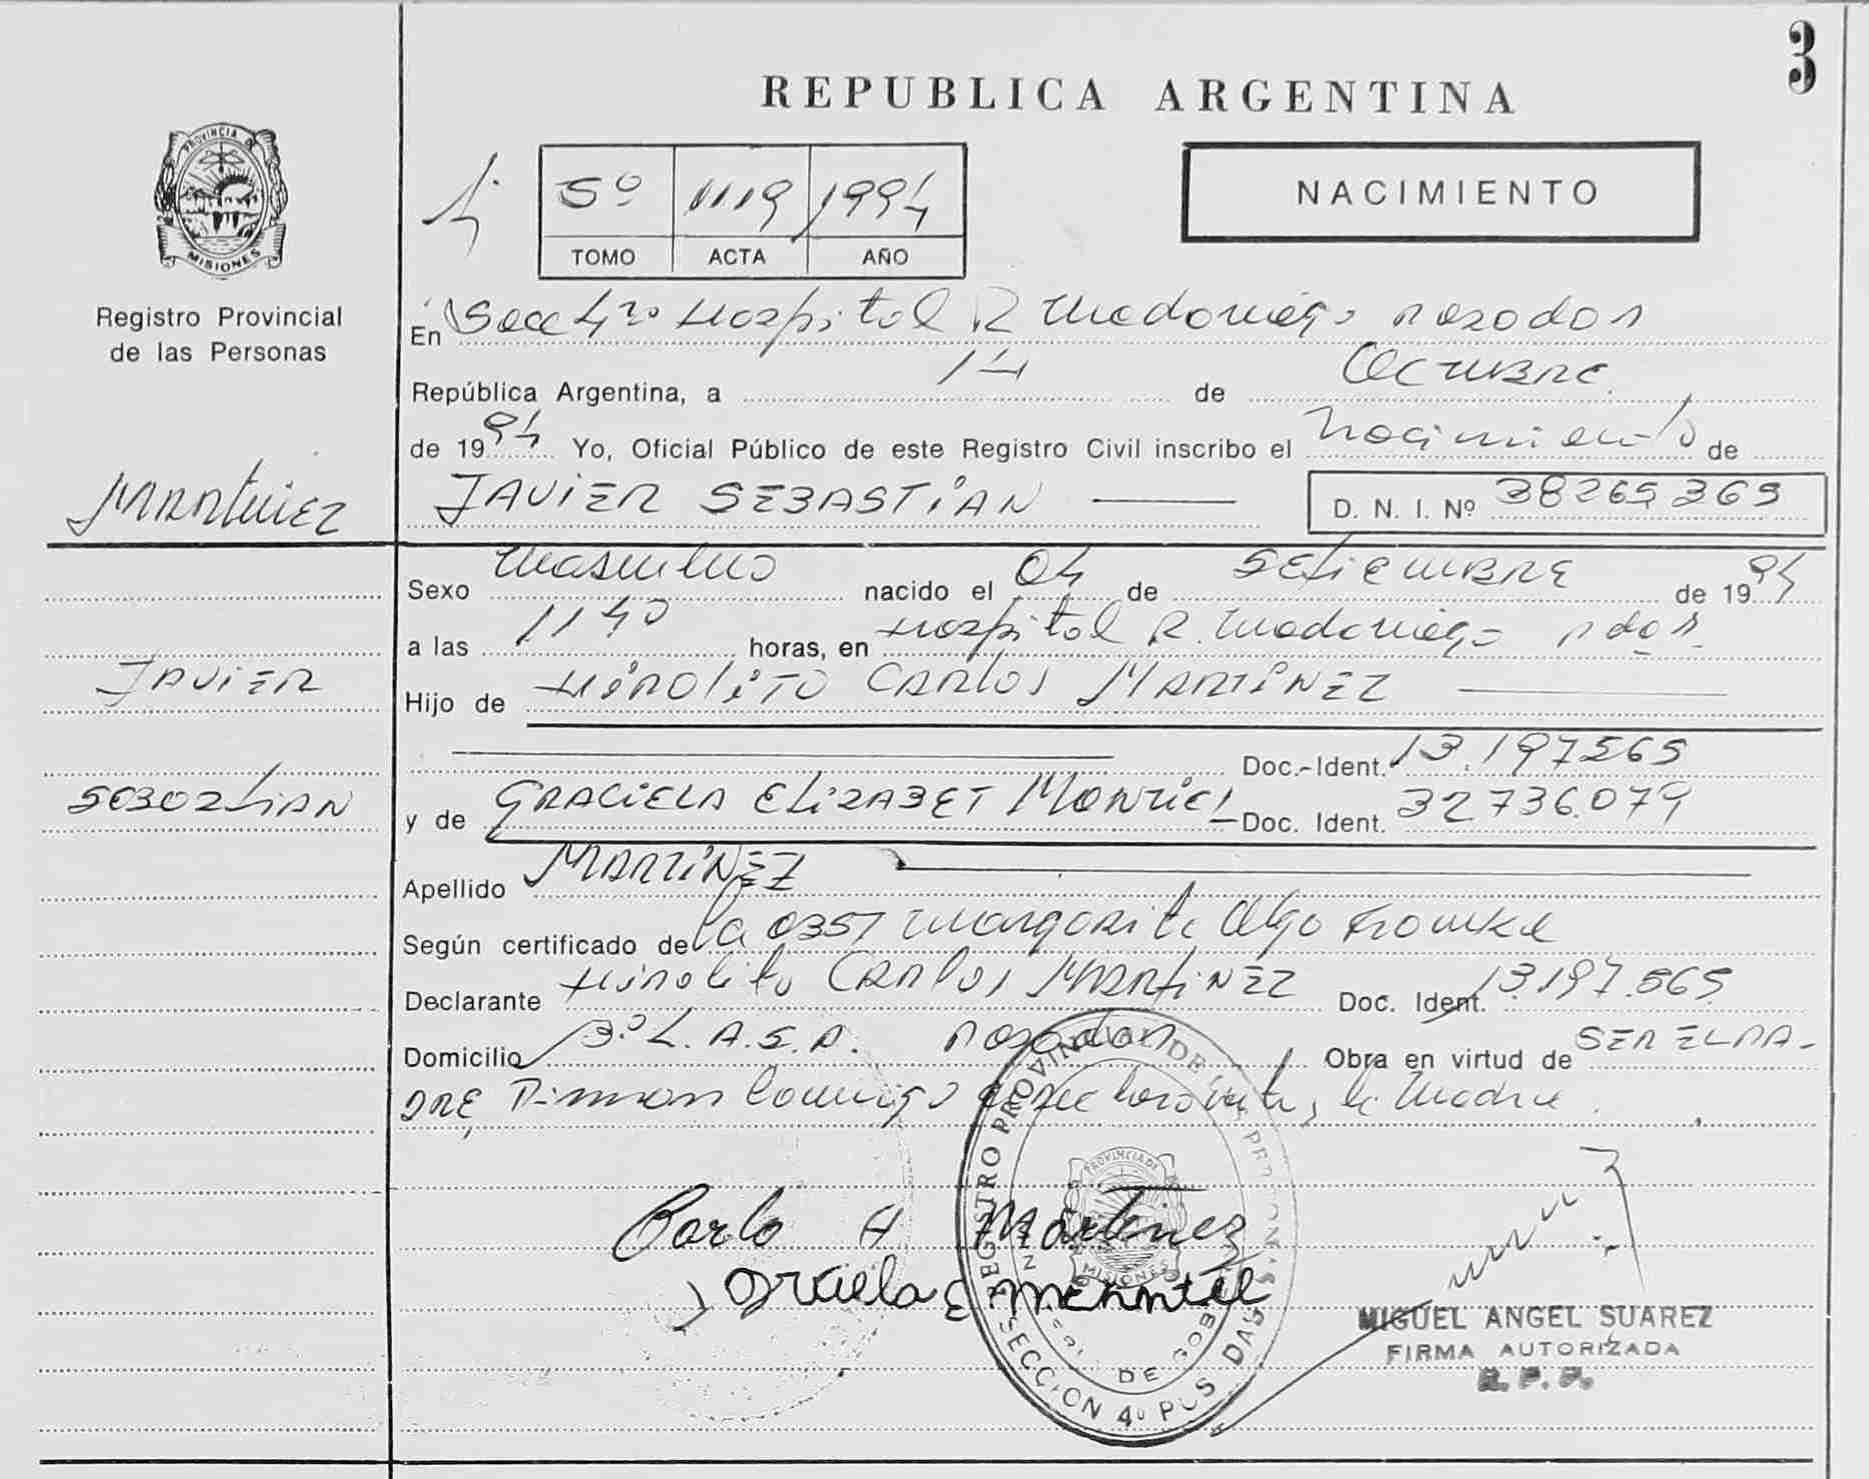 3
REPUBLICA ARGENTINA
PROVINCIA DE
MISIONES
Registro Provincial
de las Personas
5º 1119 1994
TOMO ACTA AÑO
NACIMIENTO
En Secc 4ta Hospital R Madariaga Posadas
República Argentina, a 14 de Octubre
de 1994 Yo, Oficial Público de este Registro Civil inscribo el Nacimiento de
Martinez
JAVIER SEBASTIAN D. N. I. Nº 38265369
Sexo Masculino nacido el 04 de SEtiEMBRE de 1994
a las 1140 horas, en Hospital R. Madariaga Pdas
JAVIER
Hijo de HIPOLITO CARLOS MARTINEZ
Doc.-Ident. 13.197565
SEBASTIAN
y de GRACIELA ELIZABET MONTIEL Doc. Ident. 32736.079
Apellido MARTINEZ
Según certificado de la 0357 Margarita Olga
Declarante HIPOLITO CARLOS MARTINEZ Doc. Ident. 13.197.565
Domicilio Posadas Obra en virtud de SER EL PA-
DRE, Firman Conmigo la Madre
Carlo H Martinez
Graciela E
REGISTRO PROVINCIAL DE LAS PERSONAS
PROVINCIA DE
MISIONES
SECCION 4º POSADAS
MIGUEL ANGEL SUAREZ
FIRMA AUTORIZADA
R. P. P.